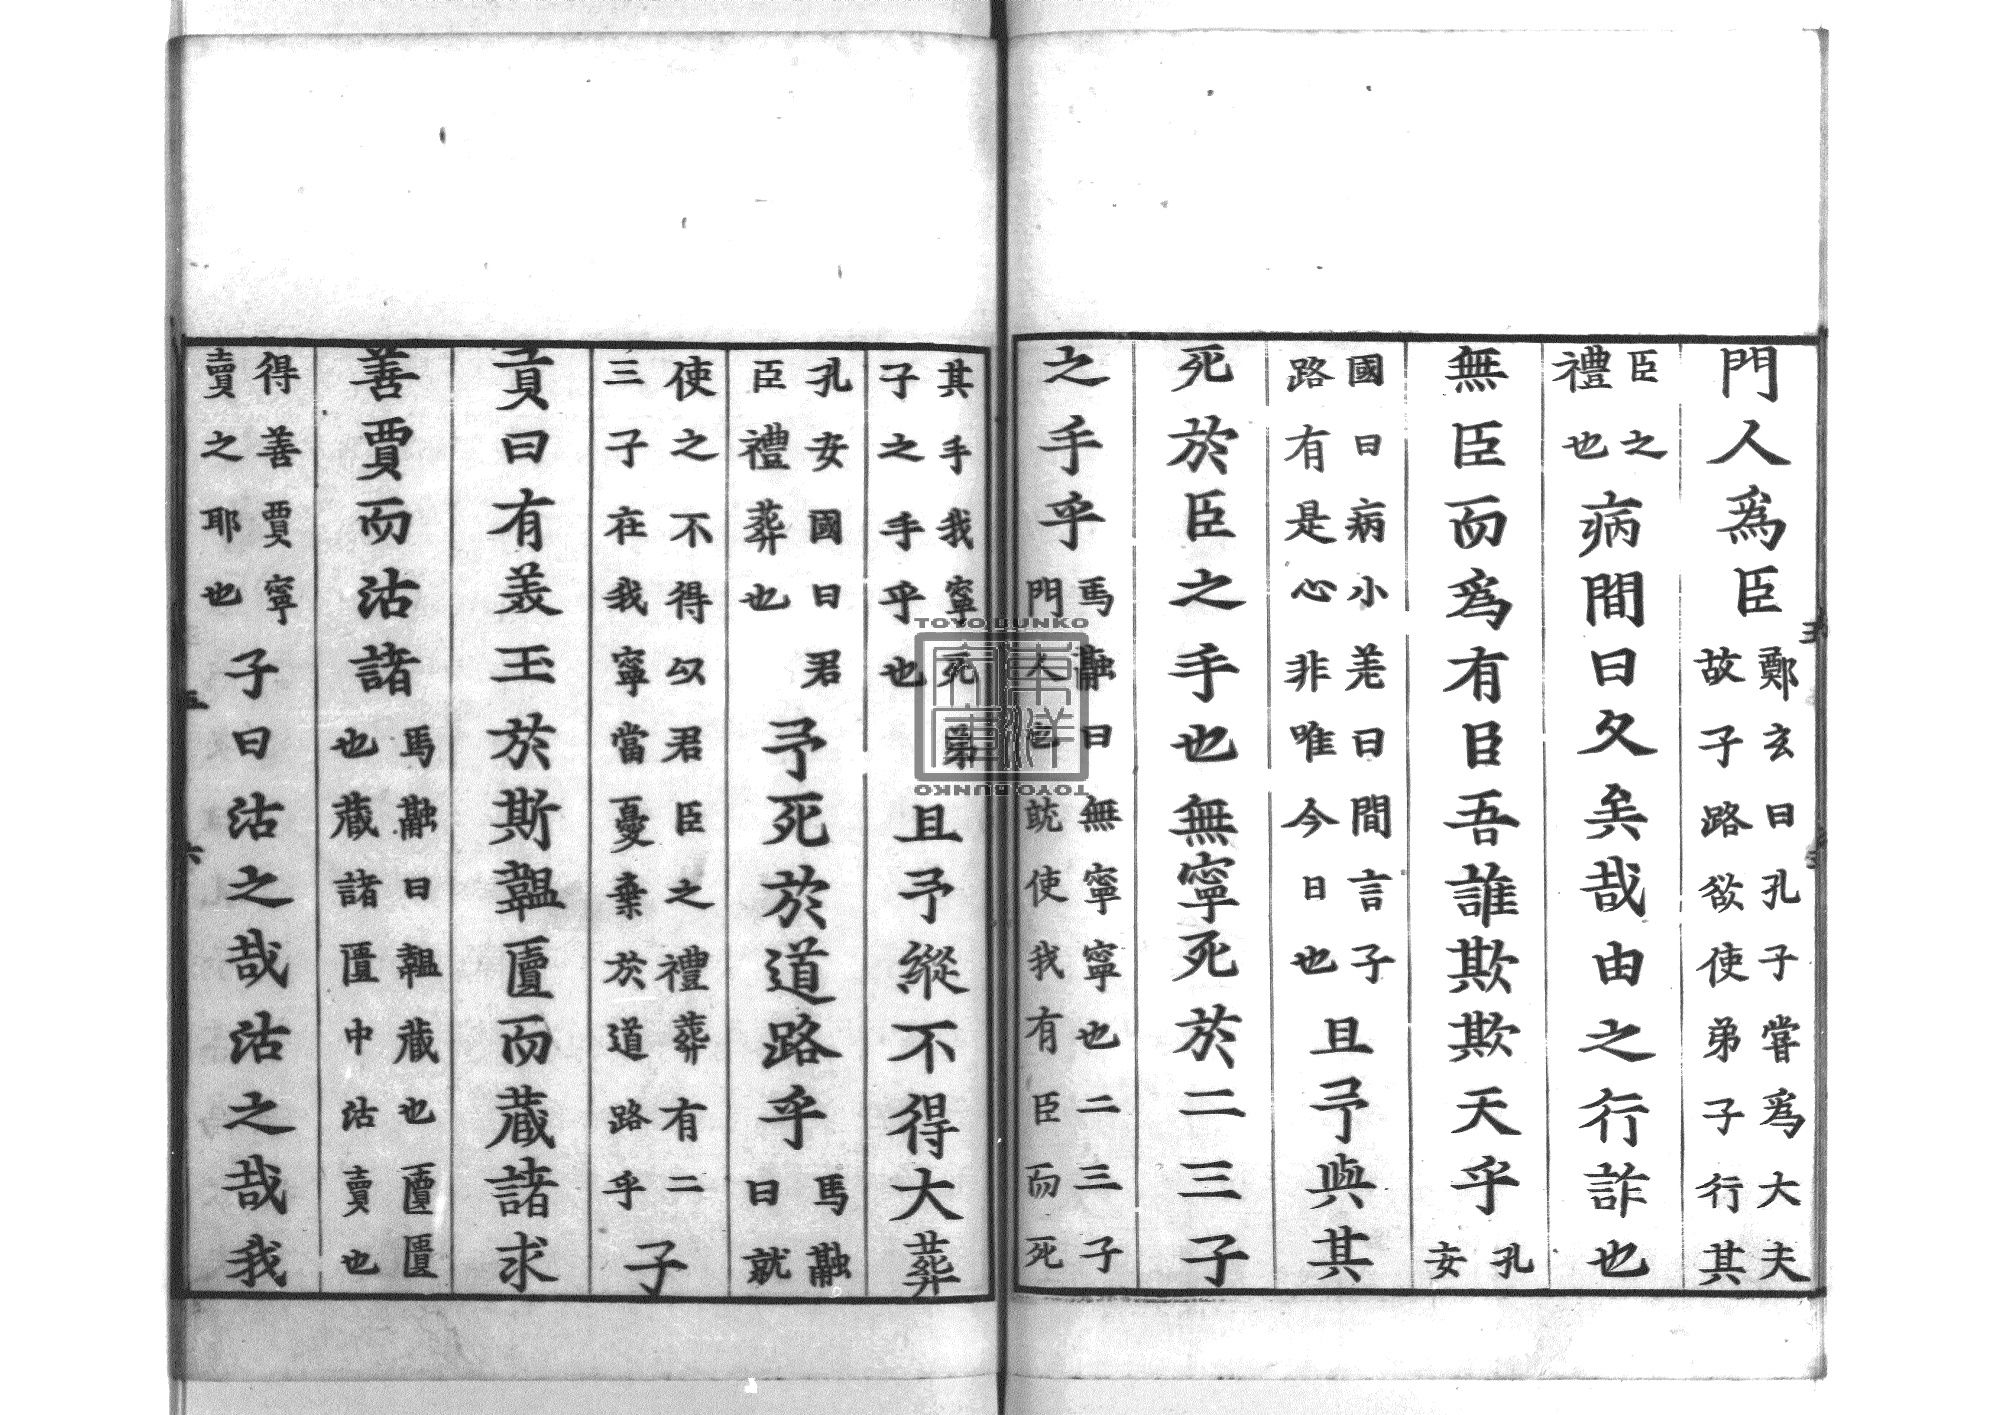 門人爲臣鄭玄曰孔子嘗爲大夫故子路欲使弟子行其
臣之禮也病間曰久矣哉由之行詐也
無臣而爲有臣吾誰欺欺天乎孔安
國曰病小差曰間言子路有是心非唯今日也且予與其
死於臣之手也無寧死於二三子
之手乎馬融曰無寧寧也二三子門人也就使我有臣而死
其手我寧死弟子之手乎也且予縱不得大葬
孔安國曰君臣禮葬也予死於道路乎馬融曰就
使之不得以君臣之禮葬有二三子在我寧當憂棄於道路乎子
貢曰有美玉於斯韞匵而藏諸求
善賈而沽諸馬融曰韞藏也匵匱也藏諸匱中沽賣也
得善賈寧賣之耶也子曰沽之哉沽之哉我
TOYO BUNKO
TOYO BUNKO